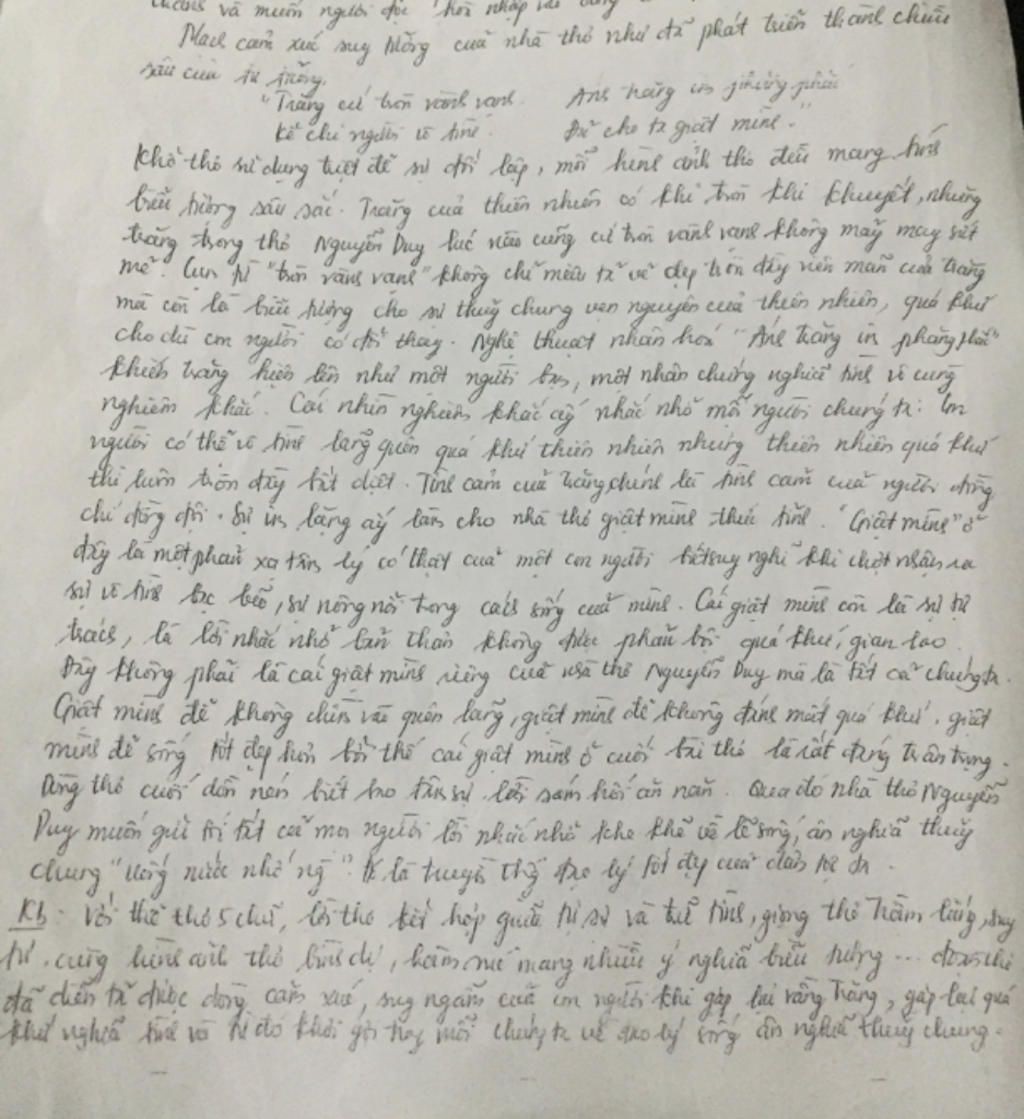 và muốn người đọc hòa nhập vào dòng
Mạch cảm xúc suy tưởng của nhà thơ như đã phát triển thành chiều
sâu của tư tưởng.
"Trăng cứ tròn vành vạnh Ánh trăng im phăng phắc
kể chi người vô tình Đủ cho ta giật mình."
Khổ thơ sử dụng triệt để sự đối lập, mỗi hình ảnh thơ đều mang tính
biểu tượng sâu sắc. Trăng của thiên nhiên có khi tròn khi khuyết, nhưng
trăng trong thơ Nguyễn Duy lúc nào cũng cứ tròn vành vạnh không mảy may sứt
mẻ. Cụm từ "tròn vành vạnh" không chỉ miêu tả vẻ đẹp tròn đầy viên mãn của trăng
mà còn là biểu tượng cho sự thuỷ chung vẹn nguyên của thiên nhiên, quá khứ
cho dù con người có đổi thay. Nghệ thuật nhân hoá "Ánh trăng im phăng phắc"
khiến trăng hiện lên như một người bạn, một nhân chứng nghĩa tình vô cùng
nghiêm khắc. Cái nhìn nghiêm khắc ấy nhắc nhở mỗi người chúng ta: Con
người có thể vô tình lãng quên quá khứ thiên nhiên nhưng thiên nhiên quá khứ
thì luôn tròn đầy bất diệt. Tình cảm của trăng chính là tình cảm của người đồng
chí đồng đội. Sự im lặng ấy làm cho nhà thơ giật mình thức tỉnh. "Giật mình" ở
đây là một phản xạ tâm lý có thật của một con người biết suy nghĩ khi chợt nhận ra
sự vô tình bạc bẽo, sự nông nổi trong cách sống của mình. Cái giật mình còn là sự tự
trách, là lời nhắc nhở bản thân không được phản bội quá khứ, gian lao.
Đây không phải là cái giật mình riêng của nhà thơ Nguyễn Duy mà là tất cả chúng ta.
Giật mình để không chìm vào quên lãng, giật mình để không đánh mất quá khứ, giật
mình để sống tốt đẹp hơn bởi thế cái giật mình ở cuối bài thơ là rất đáng trân trọng.
Dòng thơ cuối dồn nén biết bao tâm sự, lời sám hối ăn năn. Qua đó nhà thơ Nguyễn
Duy muốn gửi tới tất cả mọi người lời nhắc nhở khe khẽ về lẽ sống, ân nghĩa thuỷ
chung "uống nước nhớ ng̀". là truyền thống đạo lý tốt đẹp của dân tộc ta.
Kb: Với thể thơ 5 chữ, lời thơ kết hợp giữa tự sự và trữ tình, giọng thơ trầm lắng, suy
tư, cùng hình ảnh thơ bình dị, hàm súc mang nhiều ý nghĩa biểu tượng ... đoạn thơ
đã diễn tả được dòng cảm xúc, suy ngẫm của con người khi gặp lại vầng trăng, gặp lại quá
khứ nghĩa tình và từ đó khơi gợi trong mỗi chúng ta về đạo lý sống ân nghĩa thuỷ chung.